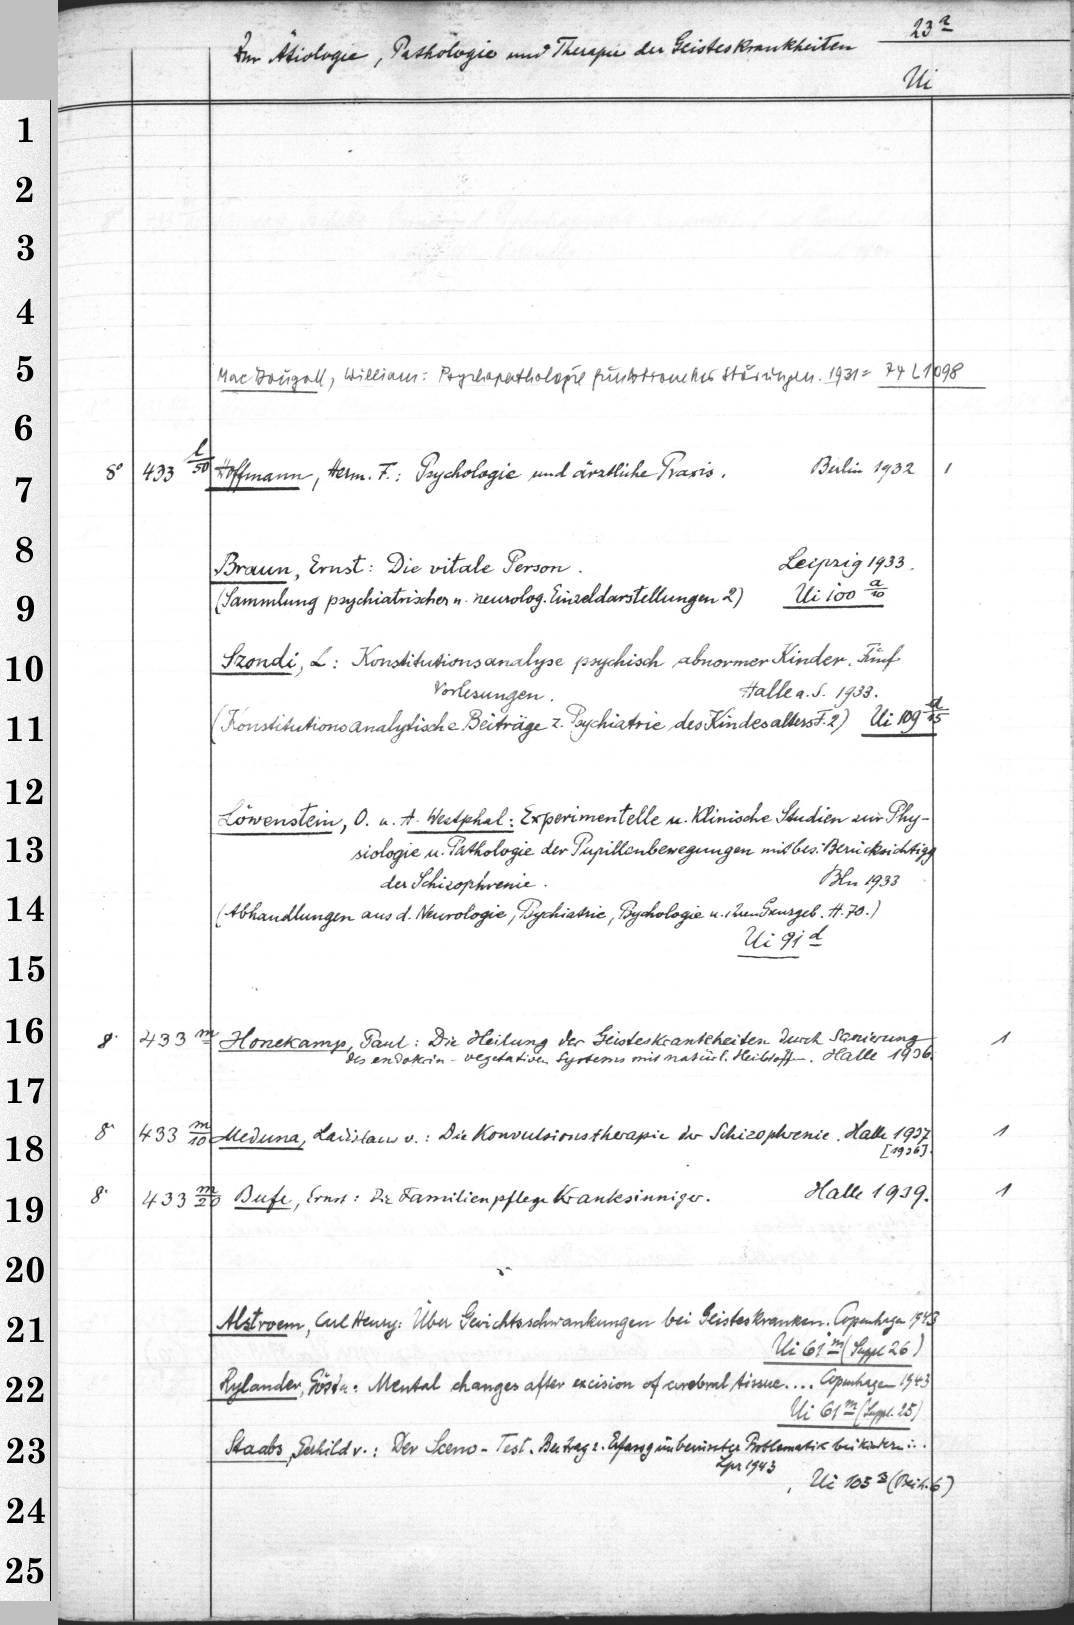 23a
Zur Ätiologie, Pathologie und Therapie der Geisteskrankheiten
Ui
1
2
3
4
5
Mac Dougall, William: Psychopathologie funktioneller Störungen. 1931 = 74 L 1098
6
8° 433 l/50 Hoffmann, Herm. F.: Psychologie und ärztliche Praxis. Berlin 1932 1
7
8
Braun, Ernst: Die vitale Person. Leipzig 1933.
9
(Sammlung psychiatrischer u. neurolog. Einzeldarstellungen 2) Ui 100 a/10
10
Szondi, L: Konstitutionsanalyse psychisch abnormer Kinder. Fünf
Vorlesungen. Halle a. S. 1933.
11
(Konstitutionsanalytische Beiträge z. Psychiatrie des Kindesalters F. 2) Ui 109 a/15
12
Löwenstein, O. u. A. Westphal: Experimentelle u. Klinische Studien zur Phy-
13
siologie u. Pathologie der Pupillenbewegungen mit bes. Berücksichtigg
der Schizophrenie. Bln 1933
14
(Abhandlungen aus d. Neurologie, Psychiatrie, Psychologie u. ihren Grenzgeb. H. 70.)
Ui 91 d
15
16
8° 433 m Honekamp, Paul: Die Heilung der Geisteskrankheiten durch Sanierung 1
des endokrin-vegetativen Systems mit natürl. Heilstoff. Halle 1936.
17
18
8° 433 m/10 Meduna, Ladislaus v.: Die Konvulsionstherapie der Schizophrenie. Halle 1937 1
[1936].
19
8° 433 m/20 Bufe, Ernst: Die Familienpflege Kranksinniger. Halle 1939. 1
20
21
Alstroem, Carl Henry: Über Gewichtsschwankungen bei Geisteskranken. Copenhagen 1943
Ui 61 m (Suppl. 26)
22
Rylander, Gösta: Mental changes after excision of cerebral tissue.... Copenhagen 1943
Ui 61 m (Suppl. 25)
23
Staabs, Gerhild v.: Der Sceno-Test. Beitrag z. Erfassg unbewusster Problematik bei Kindern...
Lpz 1943
24
Ui 105 (Beih. 6)
25